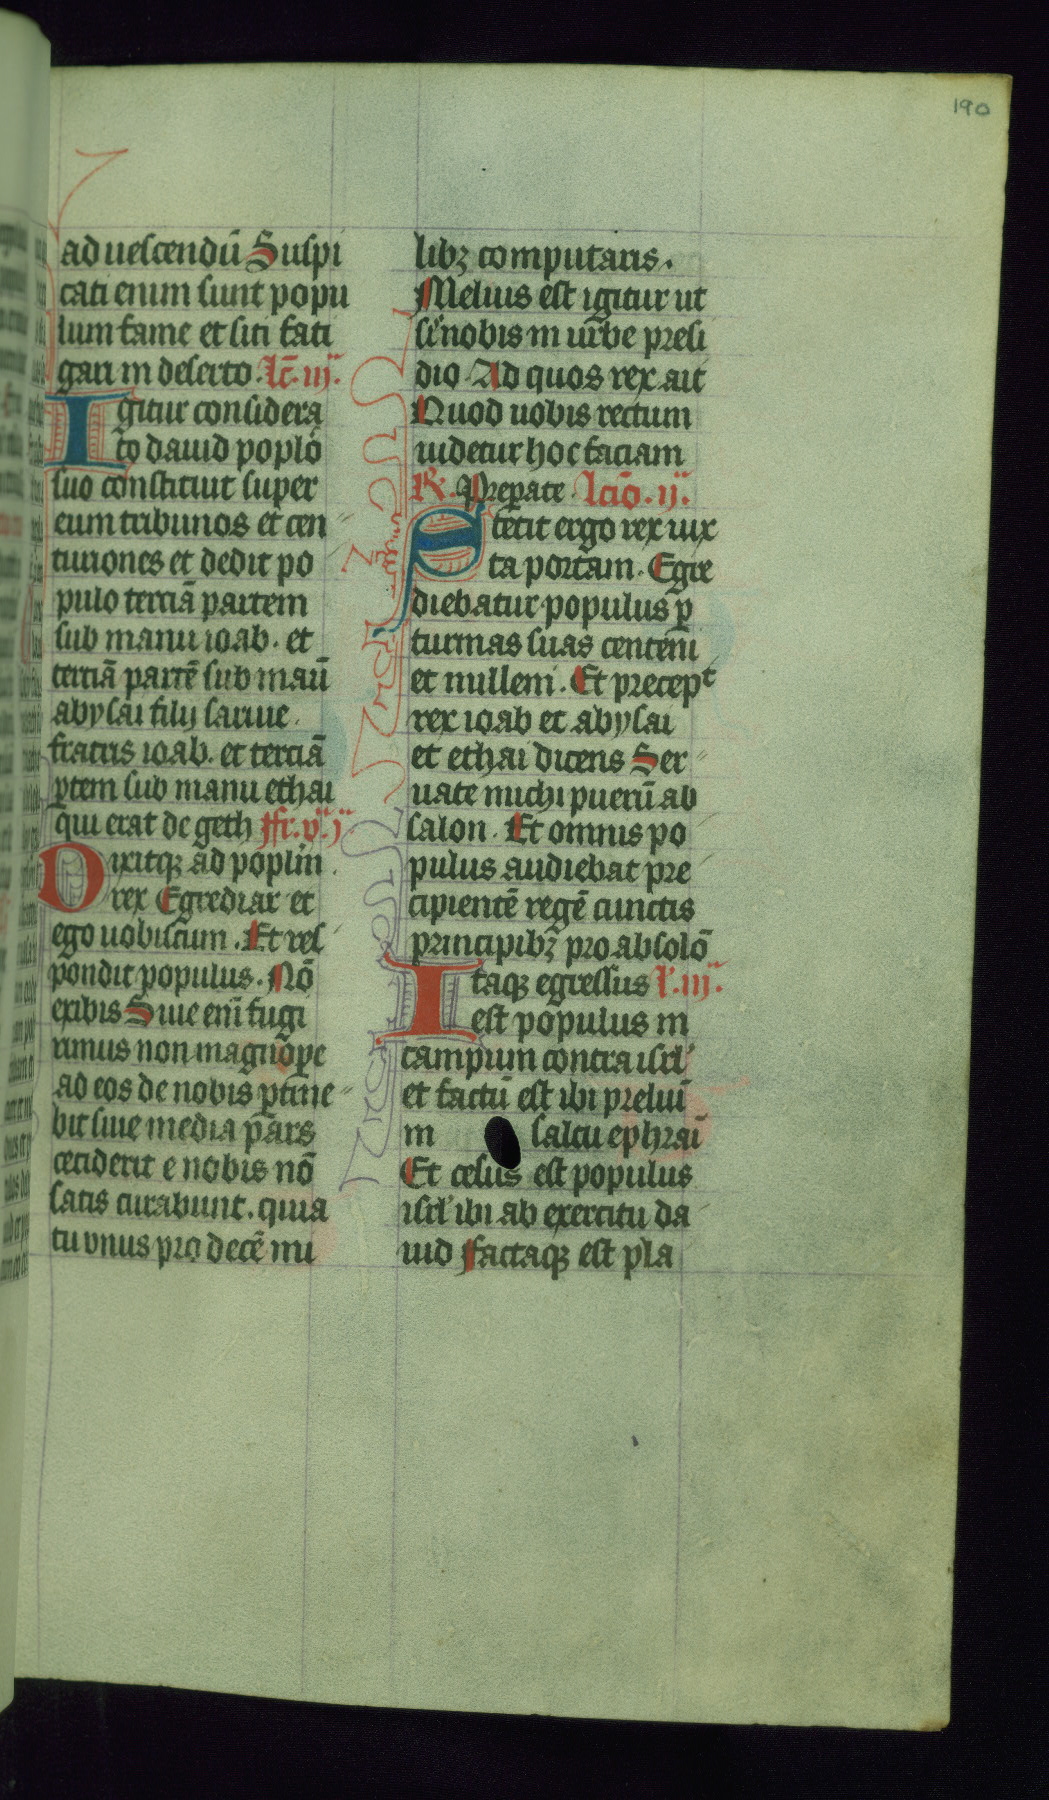 190
ad uescendū Suspi
cati enim sunt popu
lum fame et siti fati
gari in deserto. Lc̄. iij.
Igitur considera
to dauid poplo
suo constituit super
eum tribunos et cen
turiones et dedit po
pulo terciā partem
sub manu ioab. et
terciā partē sub manū
abysai filij saruie.
fratris ioab. et terciā
ꝑtem sub manu ethai
qui erat de geth fr̄. v. j.
Dixitqꝫ ad poplm̄.
rex Egrediar et
ego uobiscum. Et res
pondit populus. Nō
exibis Siue enī fugi
rimus non magnoꝑe
ad eos de nobis ꝑtine
bit siue media pars
ceciderit e nobis nō
satis curabunt. quia
tu vnus pro decē mi
libꝫ computaris.
Melius est igitur ut
sis nobis in urbe presi
dio Ad quos rex ait
Quod uobis rectum
uidetur hoc faciam
R. Preparate. lcīo. ij.
Stetit ergo rex iux
ta portam. Egre
diebatur populus ꝑ
turmas suas centeni
et milleni. Et precepᵗ
rex ioab et abysai
et ethai dicens Ser
uate michi puerū ab
salon. Et omnis po
pulus audiebat pre
cipientē regē cunctis
principibꝫ pro absolō
Itaqꝫ egressus l'. iij.
est populus in
campum contra isrl'
et factū est ibi preliū
in saltu ephraī
Et cesus est populus
isrl' ibi ab exercitu da
uid factaqꝫ est pla